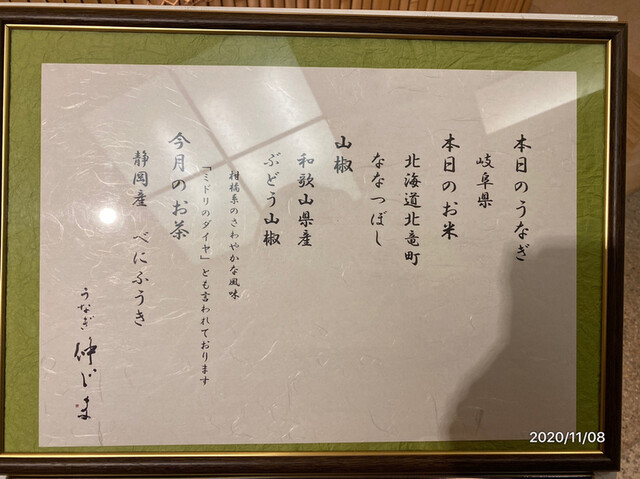 本日のうなぎ
岐阜県
本日のお米
北海道北竜町
ななつぼし
山椒
和歌山県産
ぶどう山椒
柑橘系のさわやかな風味
「ミドリのダイヤ」とも言われております
今月のお茶
静岡産 べにふうき
うなぎ 仲じま
2020/11/08